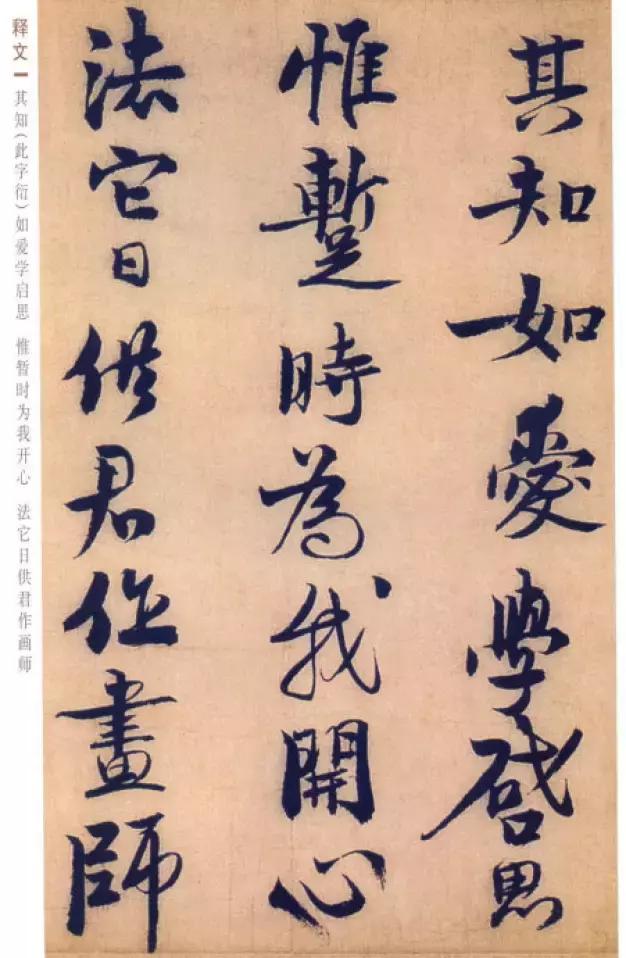 其知如愛學啓思
惟暫時為我開心
法它日供君作畫師
释文
其知(此字衍)如爱学启思 惟暂时为我开心 法它日供君作画师